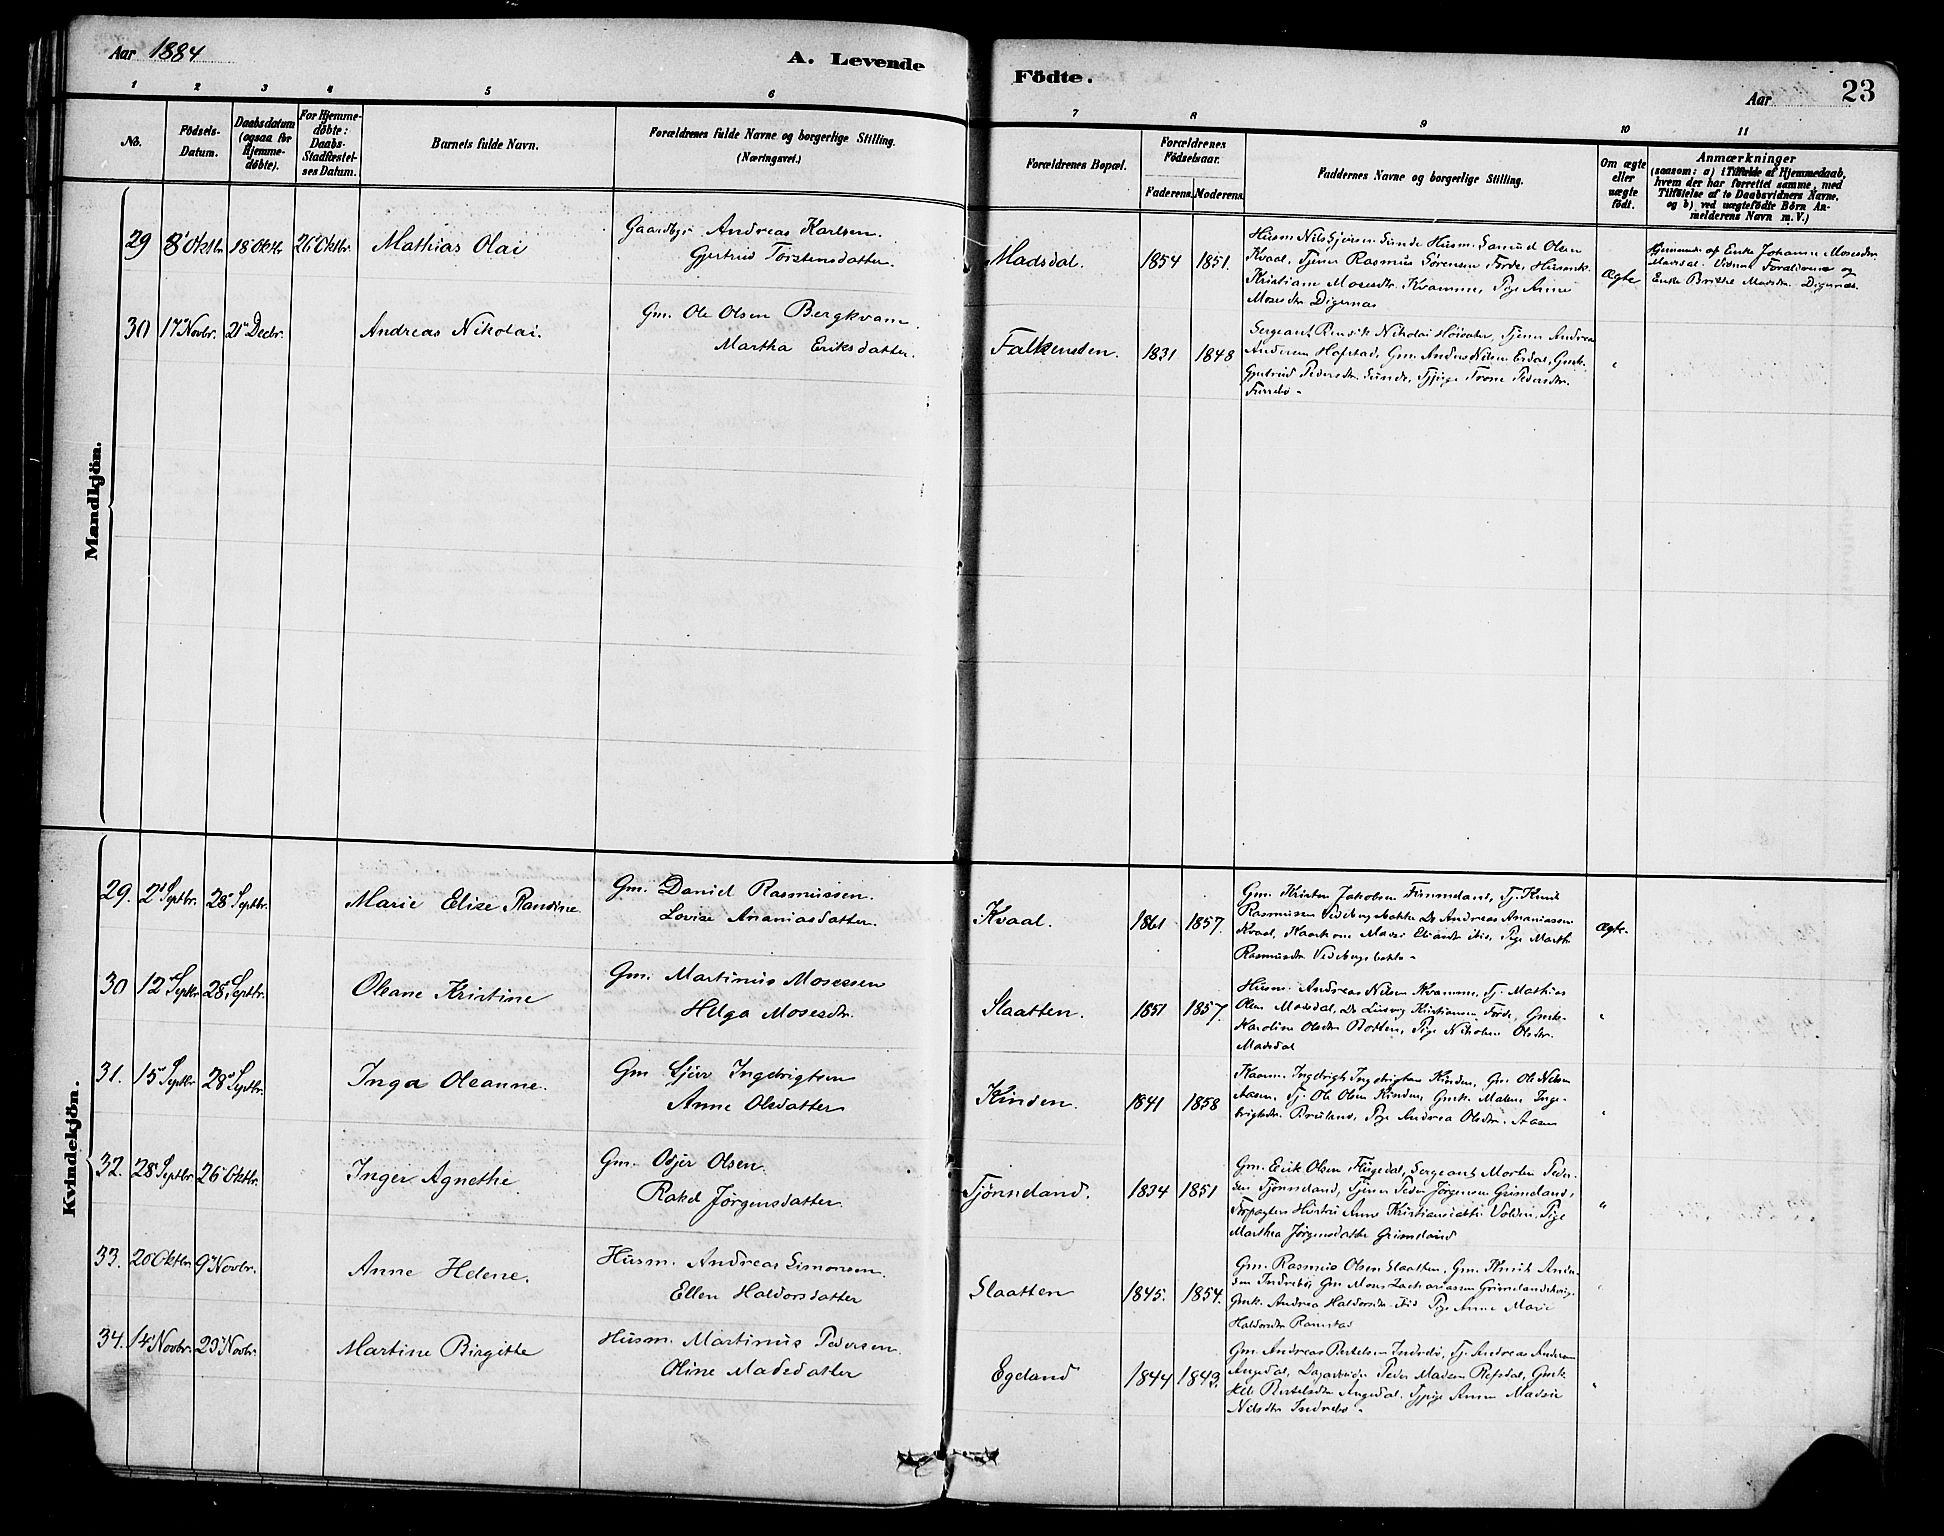 Aar 1884
A. Levende Födte.
Aar
23
1 2 3 4 5 6 7 8 9 10 11
No.
Födsels-Datum.
Daabsdatum (ogsaa for Hjemme-döbte).
For Hjemme-döbte: Daabs-Stadfæstel-ses Datum.
Barnets fulde Navn.
Forældrenes fulde Navne og borgerlige Stilling. (Næringsvei.)
Forældrenes Bopæl.
Forældrenes Födselsaar.
Faderens. Moderens.
Faddernes Navne og borgerlige Stilling.
Om ægte eller uægte födt.
Anmærkninger
(saasom: a) i Tilfælde af Hjemmedaab,
hvem der har forrettet samme, med
Tilföielse af to Daabsvidners Navne,
og b) ved uægtefödte Börn An-
melderens Navn m. V.)
Mandkjön.
29 8' Oktbr 18' Oktbr 26' Oktbr. Mathias Olai
Gaardbr. Andreas Karlsen.
Gjertrud Torstensdatter.
Madsdal. 1854 1851.
Husm Nils Sjursen Sunde Husm. Samuel Olsen
Kvaal, Tjener Rasmus Sørensen Førde, Husmk.
Kristiane Mosesdtr. Kvamme, Pige Anne
Mosesdtr Digernæs
Ægte
Hjemmed. af Enke Johanne Mosesdtr
Madsdal. Vidner Forældrene og
Enke Brithe Madsdtr. Digernæs.
30 17' Novbr. 21' Decbr. Andreas Nikolai.
Gm. Ole Olsen Bergkvam.
Martha Eriksdatter.
Falkensten. 1831 1848
Sergeant Nikolai Tjener Andreas
Andersen Hofstad, Gm. Anders Nilsen Erdal, Gmk.
Gjertrud Pedersdtr. Sunde, Tjpige Trone Pedersdtr.
Furebø
"
Kvindekjön.
29. 2' Septbr. 28' Septbr. Marie Elise Randine.
Gm. Daniel Rasmussen.
Lovise Ananiasdatter.
Kvaal. 1861 1857.
Gm. Kristen Jakobsen Fimmeland, Tj. Knut
Rasmussen Do Andreas Ananiassen
Kvaal, ibid, Pige Marth
Rasmusdtr
Ægte.
30 12' Septbr 28' Septbr. Oleane Kristine
Gm. Martinus Mosessen
Helga Mosesdtr.
Slaatten. 1851 1857.
Husm. Andreas Nilsen Kvamme, Tj. Mathias
Olsen Madsdal, Do Ludvig Kristiansen Førde, Gmk.
Karoline Olsdtr Botten, Pige Nikoline Olsdtr.
Madsdal
"
31. 15' Septbr 28' Septbr. Inga Oleanne.
Gm Sjur Ingebrigtsen
Anne Olsdatter
Kinden. 1841 1858
Kaarm. Ingebrigt Ingebrigtsen Kinden, Gm. Ole Nilsen
Aasen, Tj. Ole Olsen Kinden, Gmk. Malene Inge-
brigtsdtr. Bruland, Pige Andrea Olsdtr. Aasen
"
32. 28' Septbr 26' Oktbr. Inger Agnethe.
Gm. Osjer Olsen.
Rakel Jørgensdatter.
Tjønneland. 1834 1851
Gm. Erik Olsen Flugedal, Sergeant Morten Peder-
sen Tjønneland, Tjener Peder Jørgensen Grimeland,
Forpagters Hustru Anne Kristiansdatter Volden, Pige
Marthea Jørgensdatter Grimeland
"
33. 20' Oktbr 9' Novbr. Anne Helene.
Husm. Andreas Simonsen.
Ellen Haldorsdatter
Slaatten 1845. 1854.
Gm. Rasmus Olsen Slaatten, Gm. Knut Ande-
sen Indrebø, Gm Mons Zachariassen
Gmk. Andrea Haldorsdtr ibid Pige Anne Marie
Haldorsdtr Ramstad
"
34. 14' Novbr. 23' Novbr. Martine Birgitte
Husm. Martinus Pedersen.
Oline Madsdatter
Egeland 1844 1843.
Gm. Andreas Bertelsen Indrebø, Tj. Andreas Andersen
Angedal, Peder Madsen Refsdal, Gmk
Bertelsdtr Angedal, Tjpige Anne Marie
Nilsdtr Indrebø
"